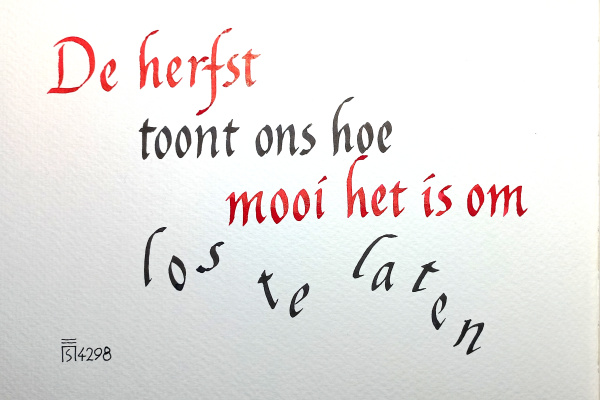 De herfst
toont ons hoe
mooi het is om
los te laten
S 4298